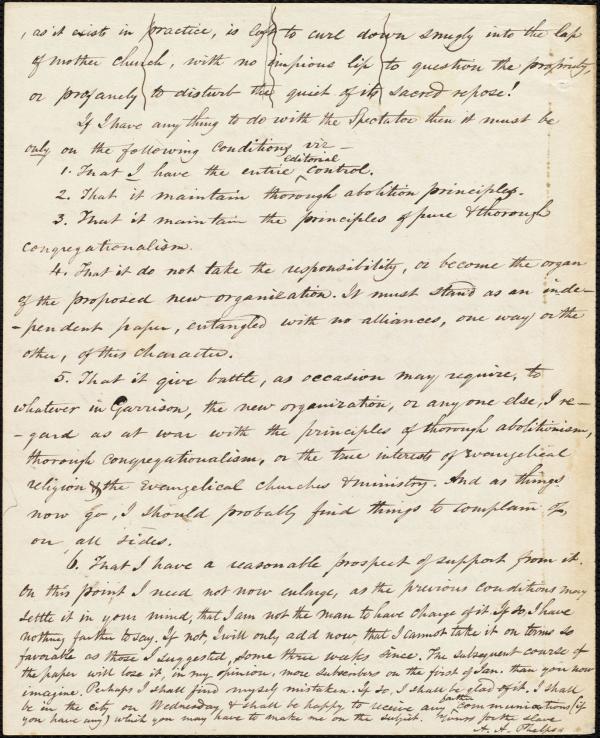 , as it exists in practice, is left to curl down snugly into the lap
of mother church, with no impious lip to question the propriety,
or profanely to disturb the quiet of its sacred repose!
If I have any thing to do with the Spectator then it must be
only on the following Conditions viz—
1. That I have the entire editorial control.
2. That it maintain thorough abolition principles.
3. That it maintain the principles of pure & thorough
Congregationalism.
4. That it do not take the responsibility, or become the organ
of the proposed new organization. It must stand as an inde-
-pendent paper, entangled with no alliances, one way or the
other, of this character.
5. That it give battle, as occasion may require, to
whatever in Garrison, the new organization, or any one else, I re-
-gard as at war with the principles of thorough abolitionism,
thorough Congregationalism, or the true interests of Evangelical
religion & the Evangelical churches & ministry. And as things
now go, I should probably find things to complain of,
on all sides.
6. That I have a reasonable prospect of support from it.
On this point I need not now enlarge, as the previous conditions may
settle it in your mind, that I am not the man to have charge of it. If so, I have
nothing farther to say. If not, I will only add now, that I cannot take it on terms so
favorable as those I suggested, some three weeks since. The subsequent course of
the paper will lose it, in my opinion, more subscribers on the first of Jan. than you now
imagine. Perhaps I shall find myself mistaken. If so, I shall be glad of it. I shall
be in the city on Wednesday, & shall be happy to receive any farther communications (if
you have any) which you may have to make me on the subject. Yours for the slave
A. A. Phelps